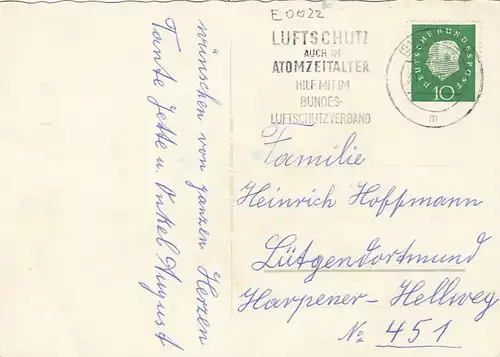 wünschen von ganzen Herzen
Tante Jette u. Onkel August
E 0022
LUFTSCHUTZ
AUCH IM
ATOMZEITALTER
HILF MIT IM
BUNDES-
LUFTSCHUTZVERBAND
DEUTSCHE BUNDESPOST
10
m
Familie
Heinrich Hoffmann
Lütgendortmund
Harpener-Hellweg
No 451